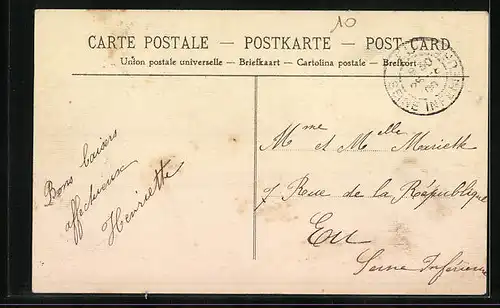 10
CARTE POSTALE — POSTKARTE — POST-CARD
Union postale universelle — Briefkaart — Cartolina postale — Brefkort
SEINE INF
Bons baisers
affectueux
Henriette
Mme et Melle Mariette
7 Rue de la République
Eu
Seine Inférieure